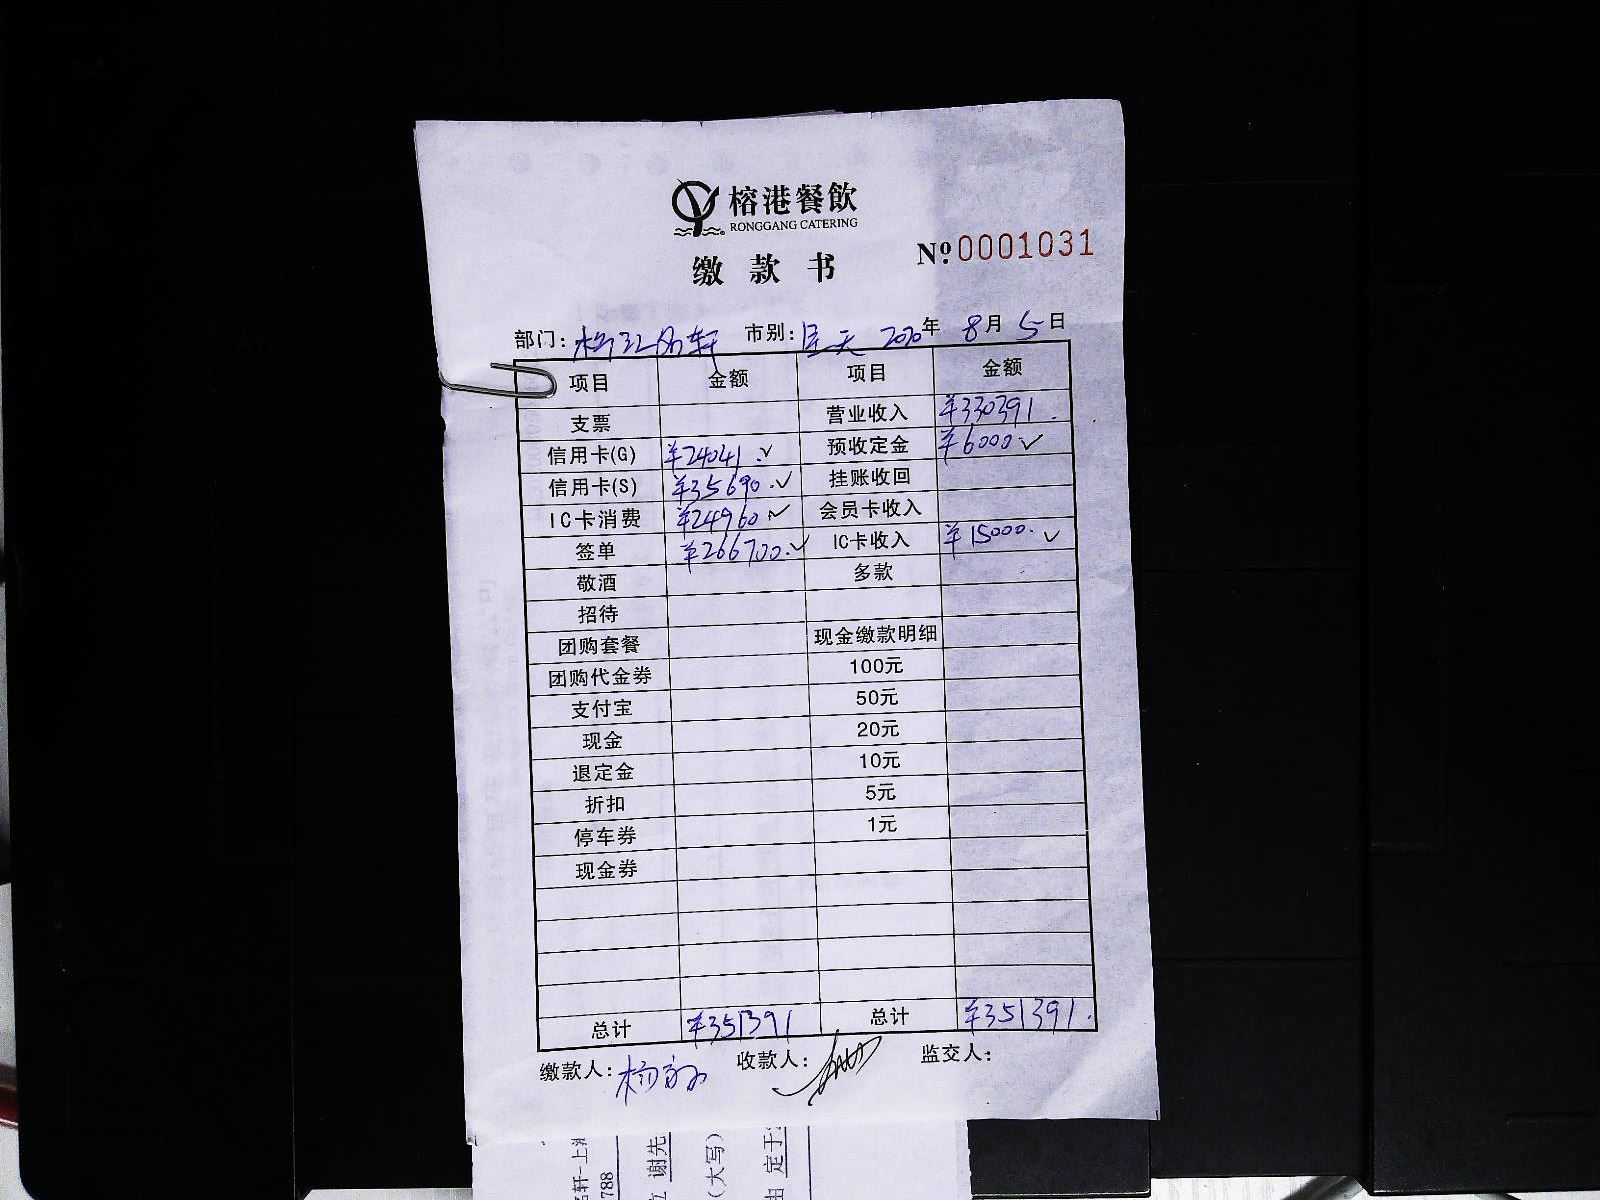 榕港餐飲
RONGGANG CATERING
缴款书
№ 0001031
部门: 市别: 全天 2020年 8月 5日
项目 金额 项目 金额
支票 营业收入 ¥330391.
信用卡(G) ¥24041. 预收定金 ¥6000
信用卡(S) ¥35690. 挂账收回
IC卡消费 ¥24960 会员卡收入
签单 ¥266700. IC卡收入 ¥15000.
敬酒 多款
招待
团购套餐 现金缴款明细
团购代金券 100元
支付宝 50元
现金 20元
退定金 10元
折扣 5元
停车券 1元
现金券
总计 ¥351391 总计 ¥351391.
缴款人: 收款人: 监交人:
轩-上
788
谢先
(大写)
定于